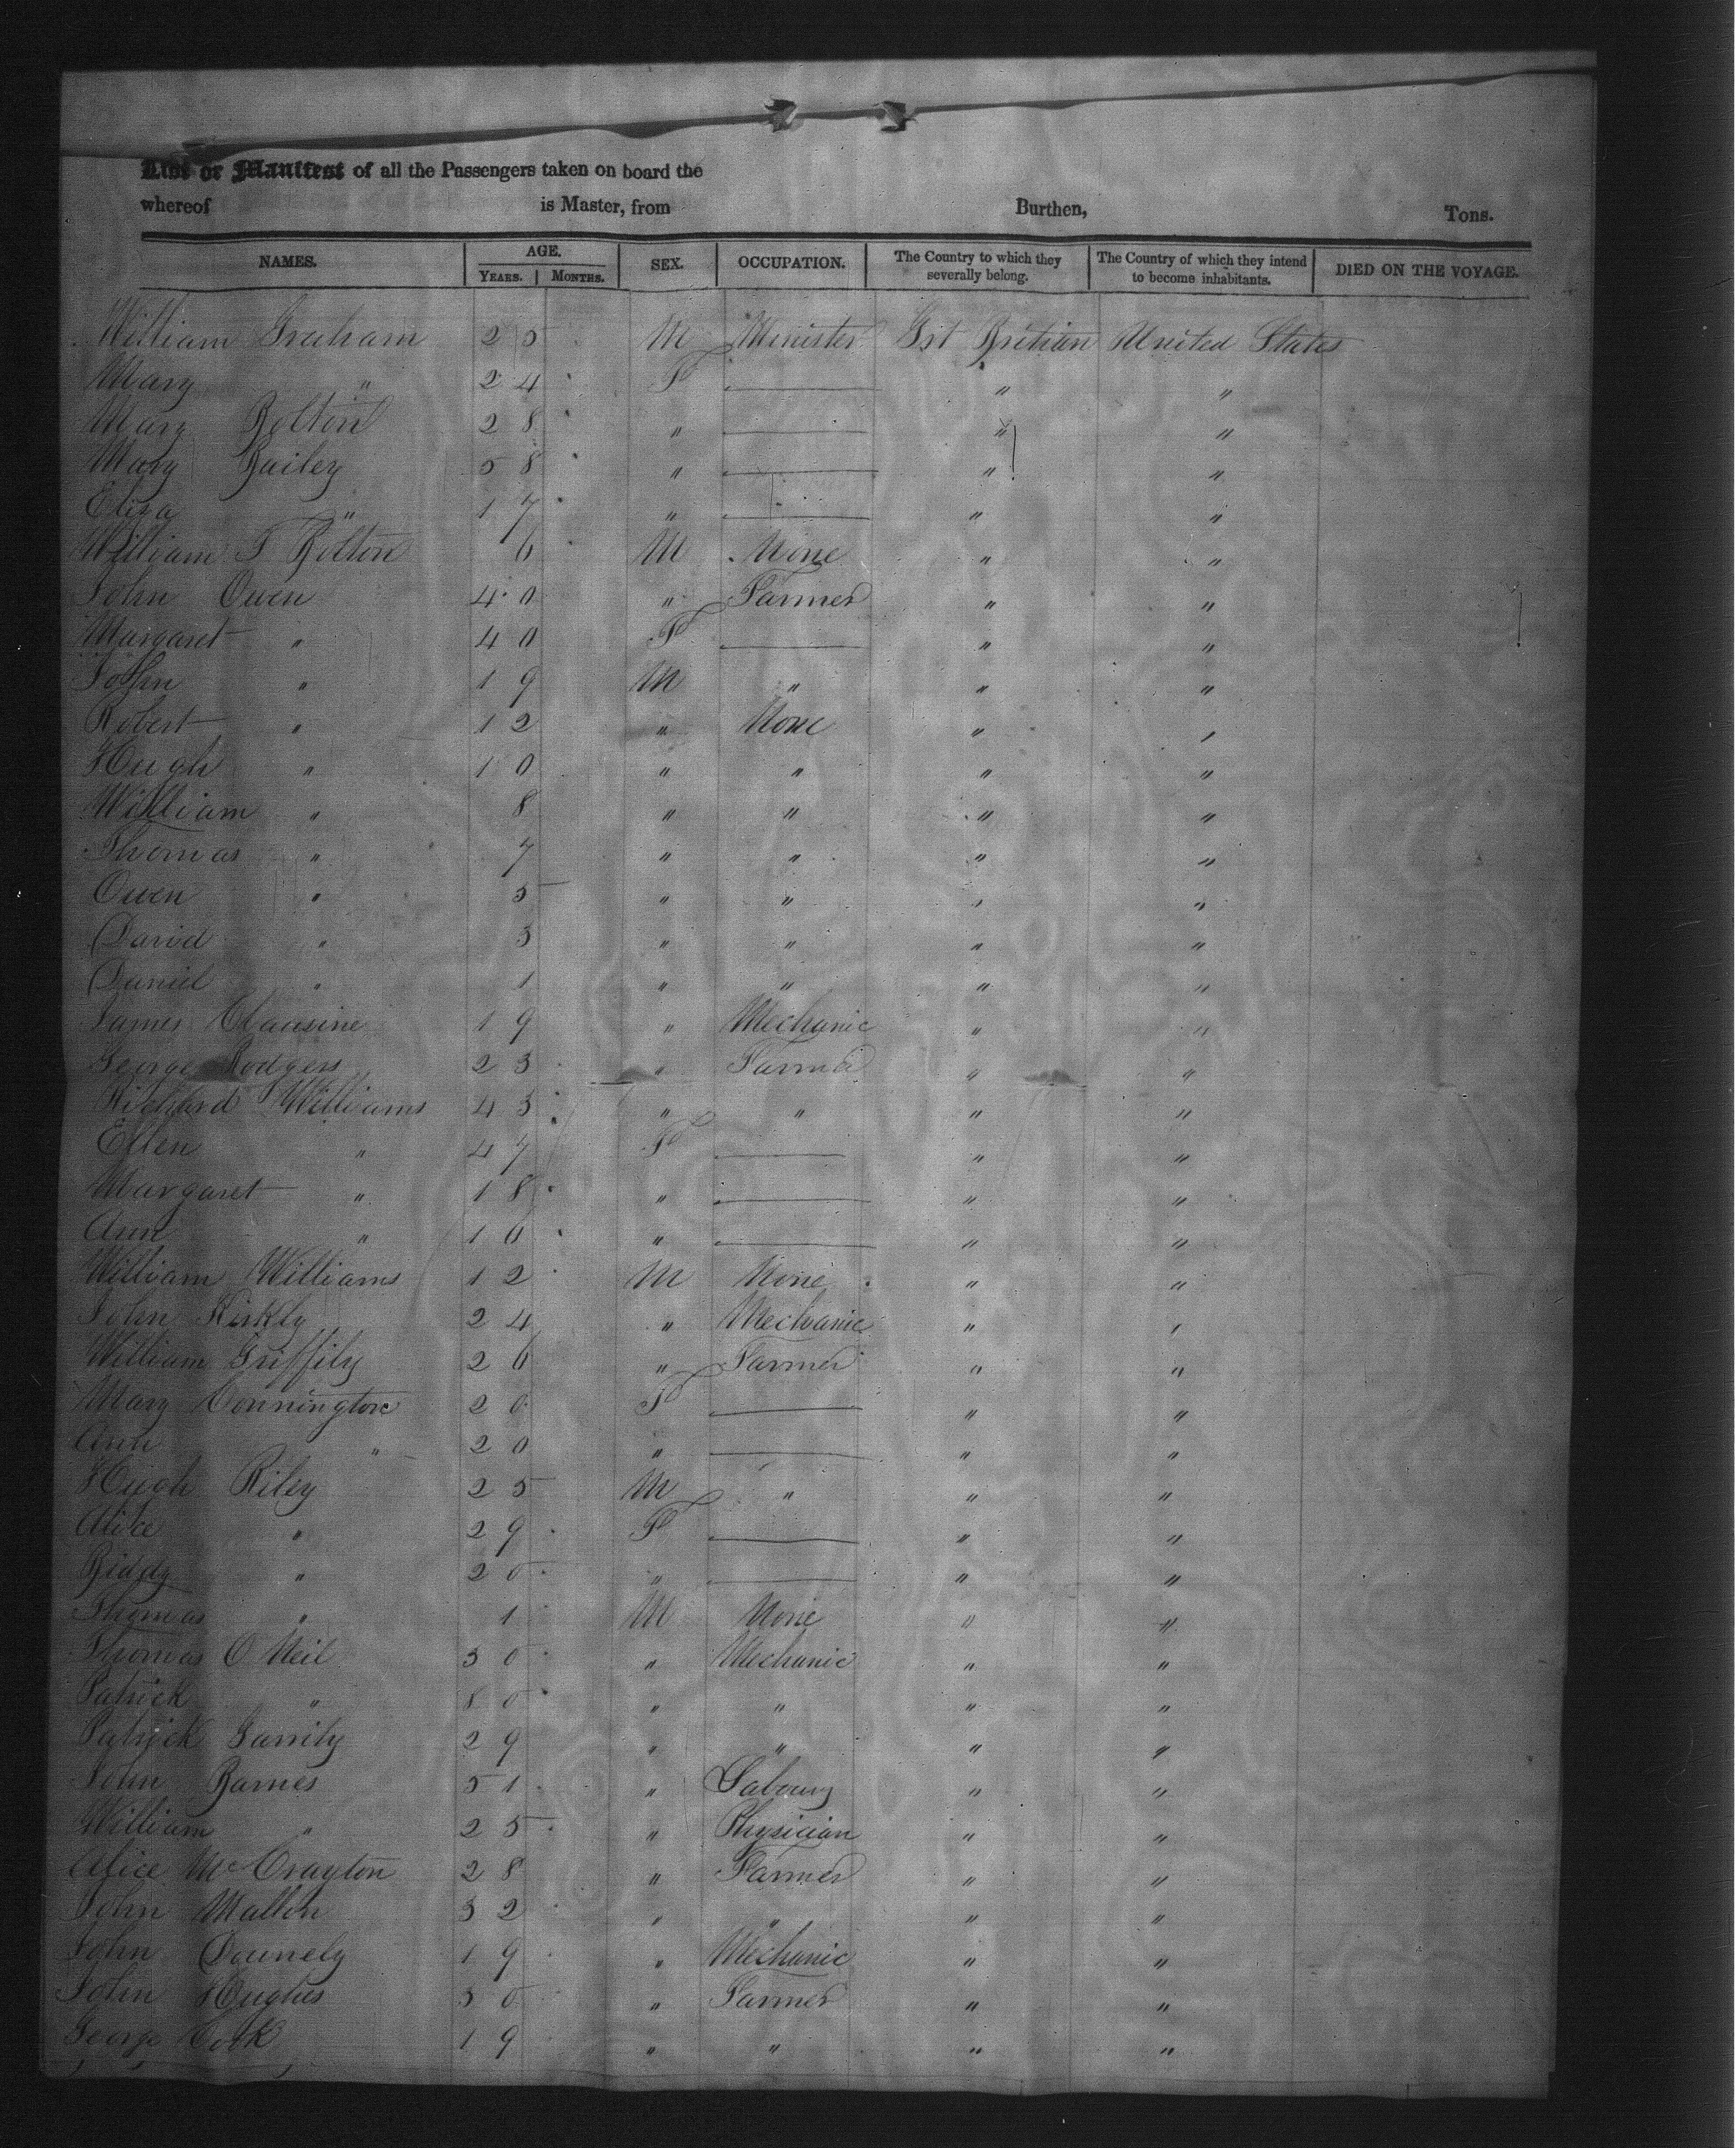 List or Manifest of all the Passengers taken on board the
whereof is Master, from Burthen, Tons.
NAMES. AGE. YEARS. MONTHS. SEX. OCCUPATION. The Country to which they severally belong. The Country of which they intend to become inhabitants. DIED ON THE VOYAGE.
William Graham 25 M Minister Grt Britian United States
Mary " 24 F — " "
Mary Bolton 28 " — " "
Mary Bailey 58 " — " "
Eliza " 17 " — " "
William T Bolton 6 M None " "
John Owen 40 " Farmer " "
Margaret " 40 F — " "
John " 19 M " " "
Robert " 12 " None " "
Hugh " 10 " " " "
William " 8 " " " "
Thomas " 7 " " " "
Owen " 5 " " " "
David " 3 " " " "
Daniel " 1 " " " "
James Clausine 19 " Mechanic " "
George Rodgers 23 " Farmer " "
Richard Williams 43 " " " "
Ellen " 47 F — " "
Margaret " 18 " — " "
Ann " 10 " — " "
William Williams 12 M None " "
John Kirkly 24 " Mechanic " "
William Griffily 26 " Farmer " "
Mary Connington 20 F — " "
Ann " 20 " — " "
Hugh Riley 25 M " " "
Alice " 29 F — " "
Biddy " 20 " — " "
Thomas " 1 M None " "
Thomas O Neil 30 " Mechanic " "
Patrick " 80 " " " "
Patrick Garrity 29 " " " "
John Barnes 51 " " "
William " 25 " Physician " "
Alice McCrayton 28 " Farmer " "
John Mallon 32 " " " "
John Dounely 19 " Mechanic " "
John Hughes 30 " Farmer " "
George Cook 19 " " " "